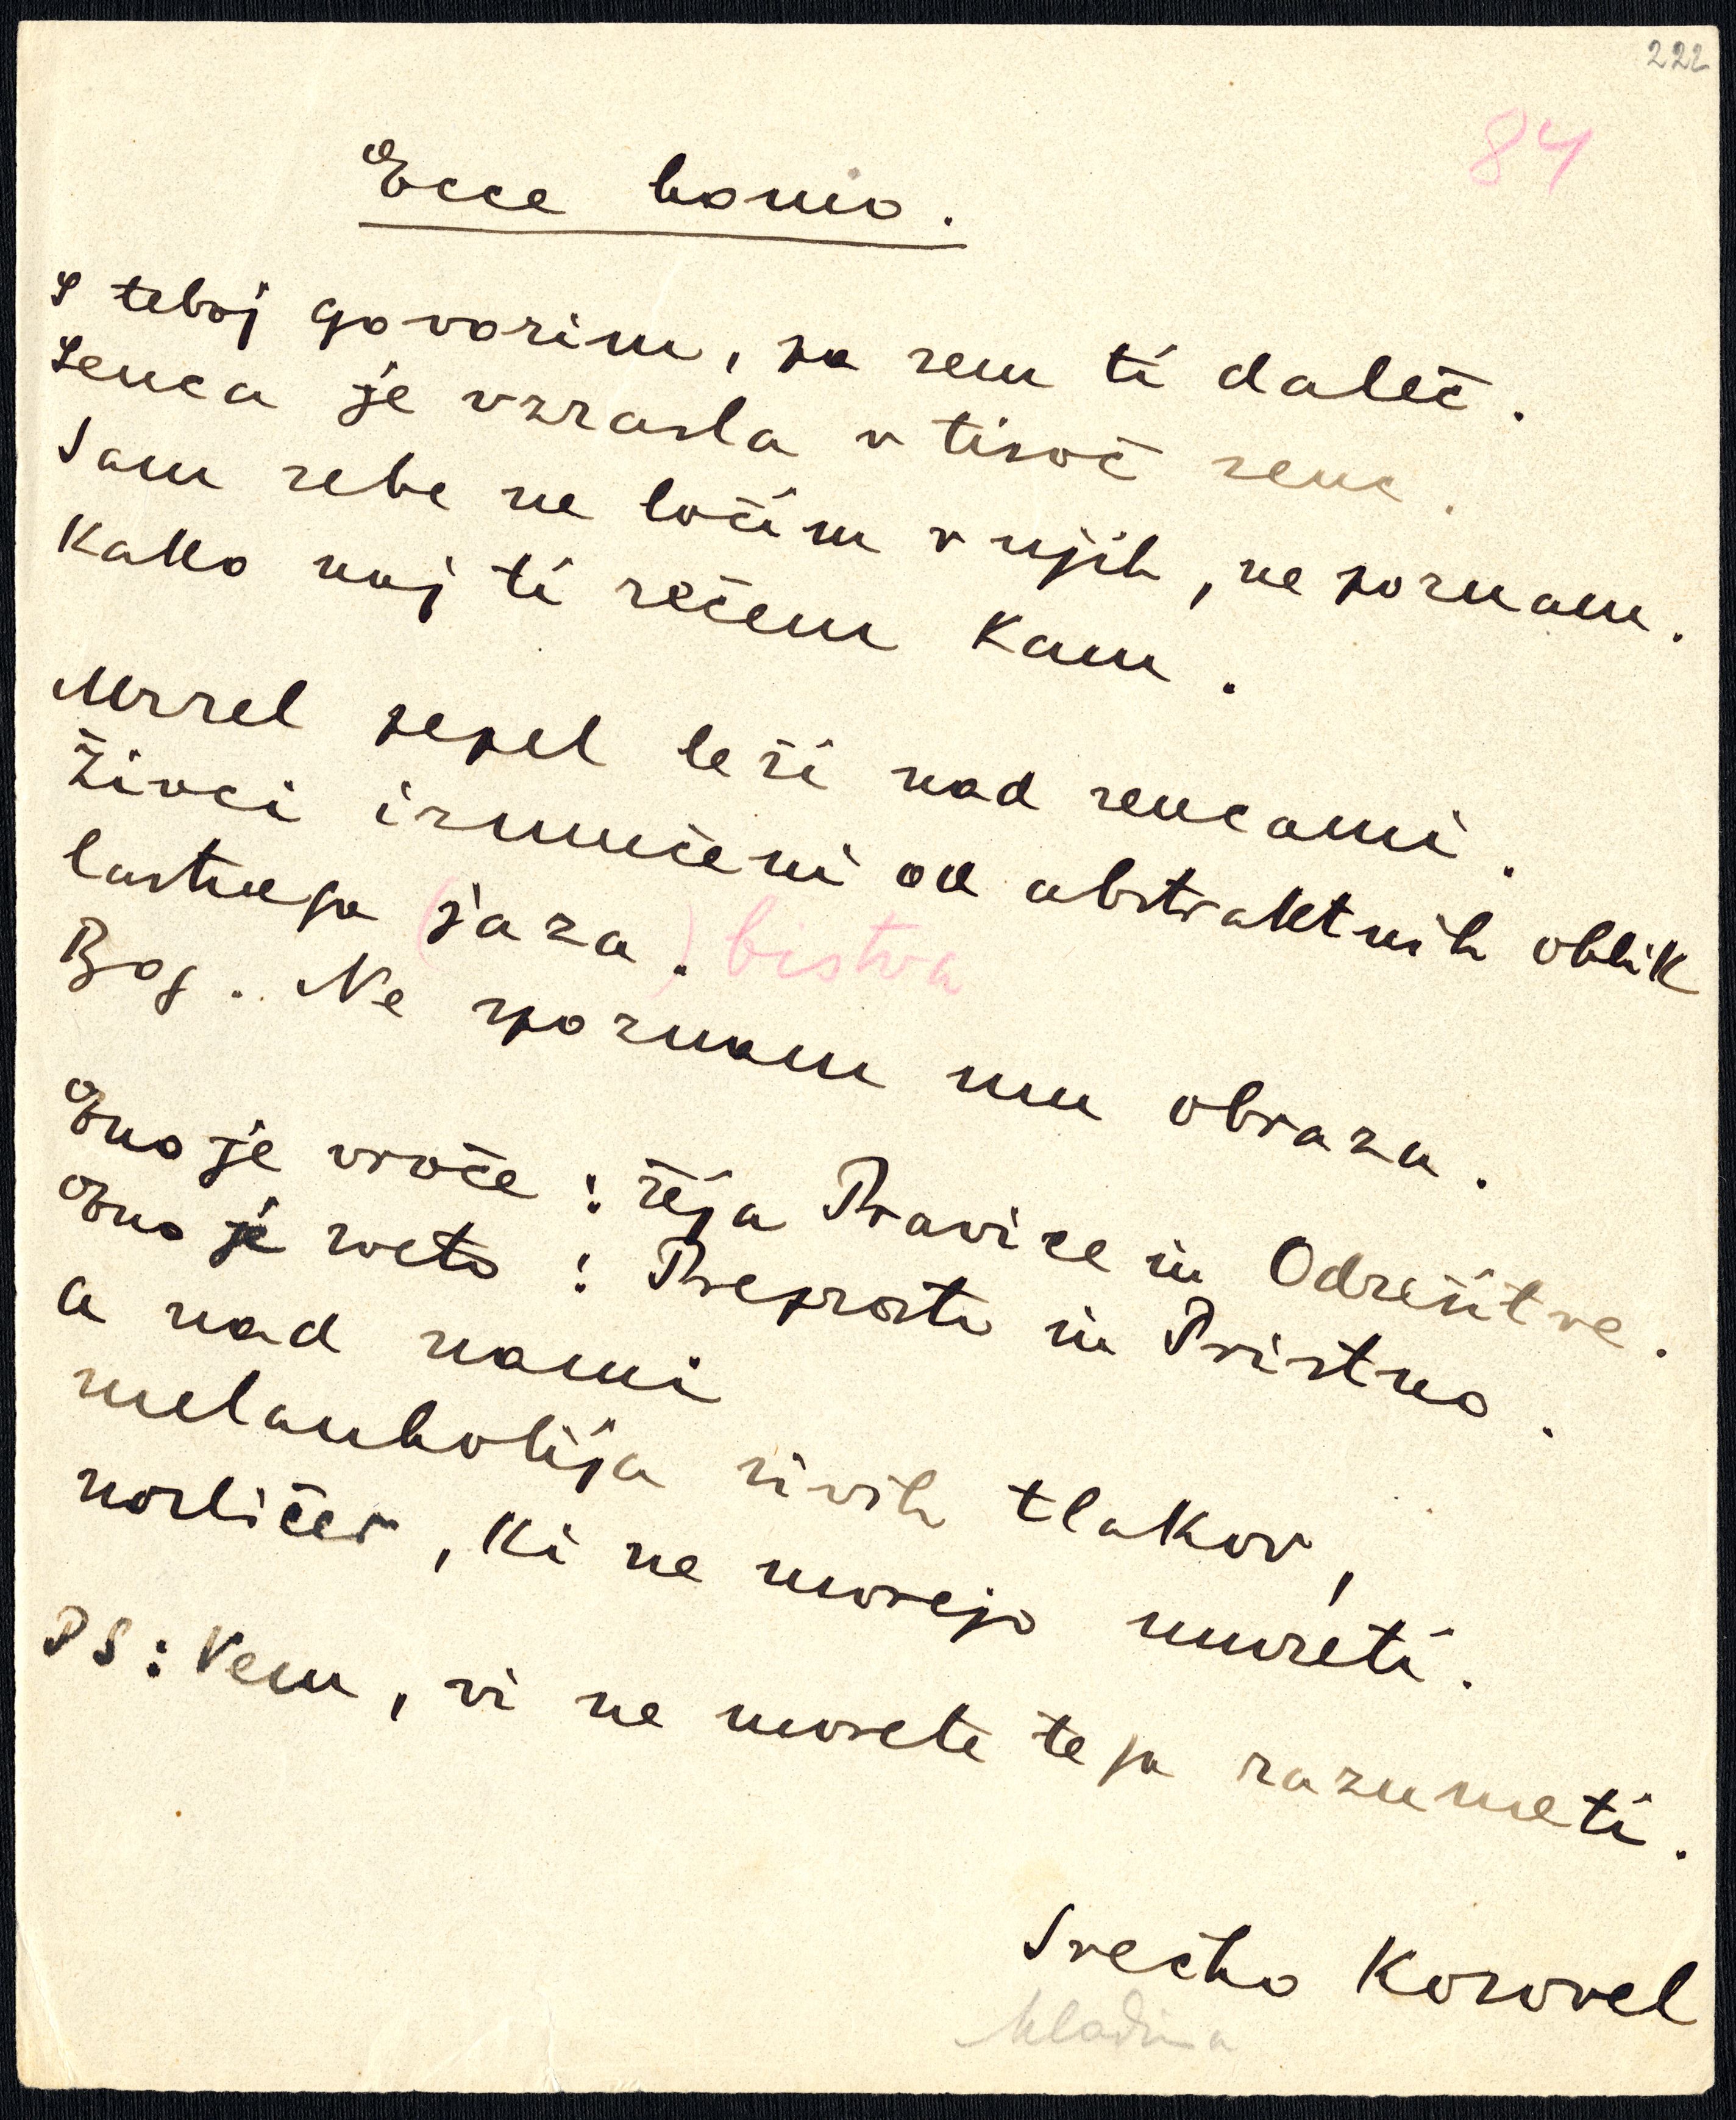 222
84
Ecce homo.
S teboj govorim, pa sem ti daleč.
Senca je vzrasla v tisoč senc.
Sam sebe ne ločim v njih, ne poznam.
Kako naj ti rečem kam.
Mrzel pepel leži nad sencami.
Živci izmučeni od abstraktnih oblik
lastnega (jaza.) bistva
Bog. Ne spoznam mu obraza.
Eno je vroče: žeja Pravice in Odrešitve.
Eno je sveto: Preprosto in Pristno.
a nad nami
melanholija sivih tlakov,
nosličev, ki ne morejo umreti.
PS: Vem, vi ne morete tega razumeti.
Srečko Kosovel
Mladina